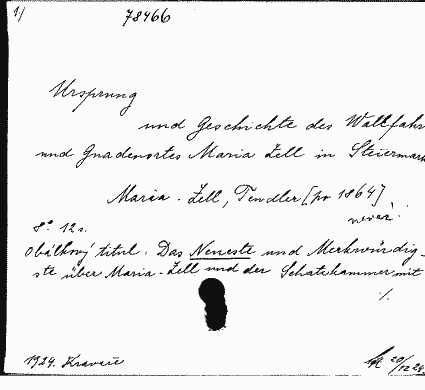 1/
78466
Ursprung
und Geschichte des Wallfahr
und Gnadenortes Maria Zell in Steiermark
Maria-Zell, Tendler [po 1864]
neväz.
8° 12 s.
Obálkový titul: Das Neueste und Merkwürdig-
ste über Maria-Zell und der Schatzkammer mit
./.
1924. Kravaře
20/12 24.